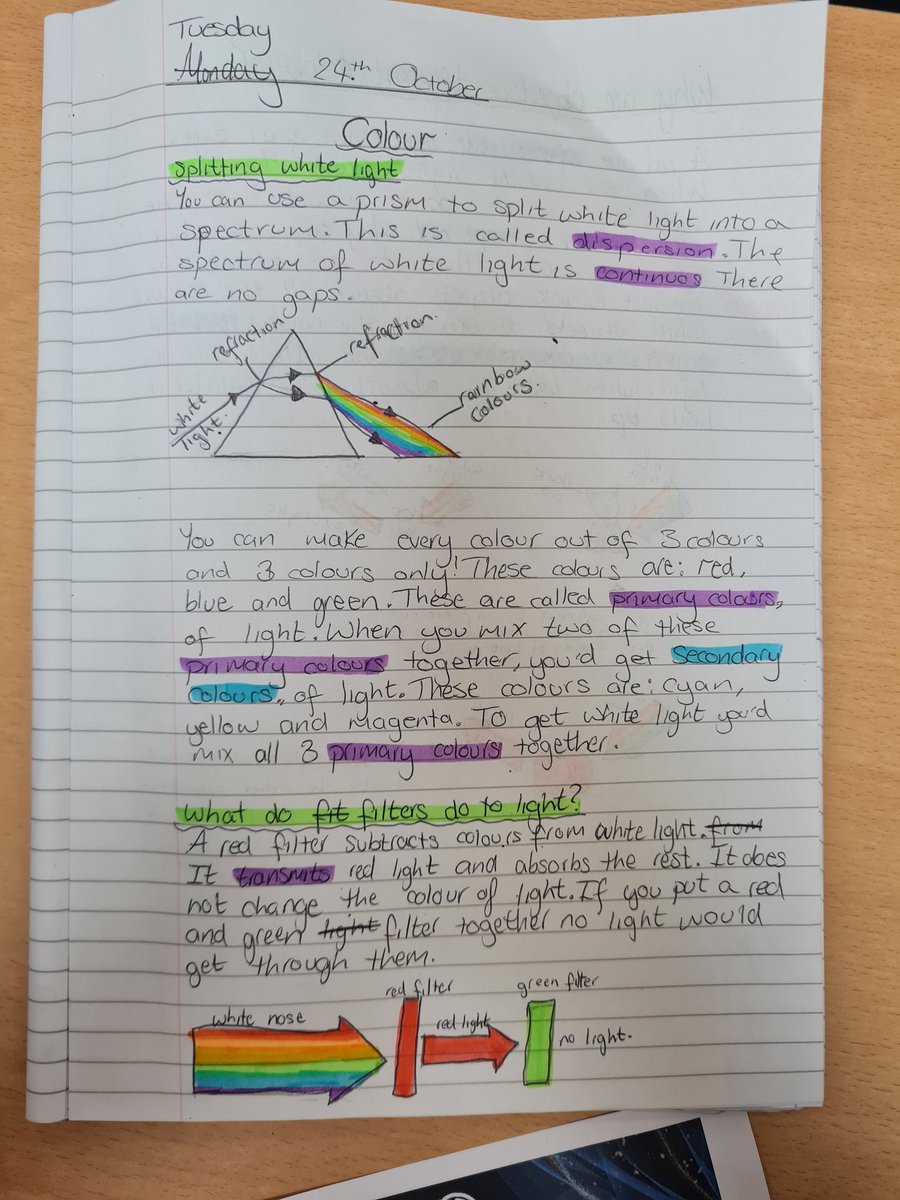 Tuesday
Monday 24th October
Colour
Splitting white light
You can use a prism to split white light into a
spectrum. This is called dispersion. The
spectrum of white light is continuos There
are no gaps.
refraction
refraction.
white
light.
rainbow
colours.
You can make every colour out of 3 colours
and 3 colours only! These colours are: red,
blue and green. These are called primary colours,
of light. When you mix two of these
primary colours together, you'd get secondary
colours, of light. These colours are: cyan,
yellow and magenta. To get white light you'd
mix all 3 primary colours together.
What do fit filters do to light?
A red filter subtracts colours from white light. from
It transmits red light and absorbs the rest. It does
not change the colour of light. If you put a red
and green light filter together no light would
get through them.
white nose
red filter
red light
green filter
no light.